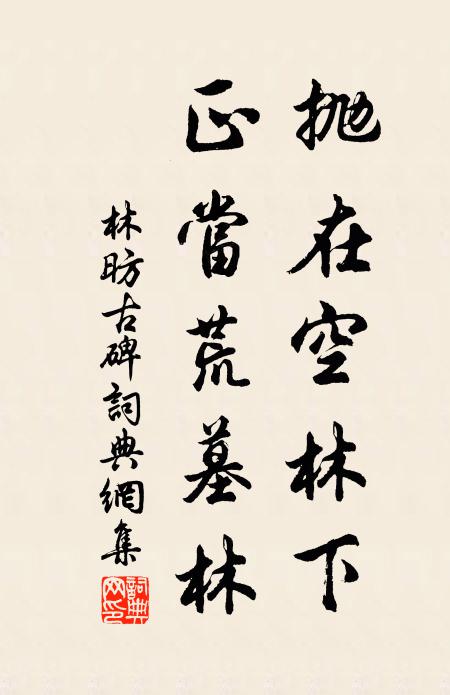 抛在空林下
正當荒墓林
林昉古碑詞典網集
詞典网印